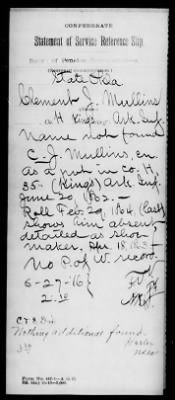 CONFEDERATE
Statement of Service Reference Slip.
State Fla.
Clement J. Mullins
H Kings Ark. Inf.
Name not found
C. J. Mullins, en
as a pvt in Co. H.
35 (Kings) Ark. Inf.
June 20, 1862.-
Roll Feb. 29, 1864, (last)
shows him absent,
detailed as shoe
maker, Apr. 18, 1863-
No P. of W. record.
6-27-16
Nothing additional found.